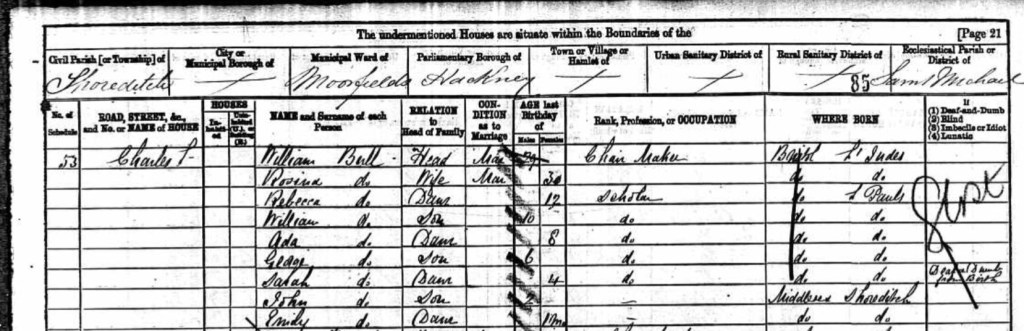 The undermentioned Houses are situate within the Boundaries of the [Page 21
Civil Parish [or Township] of
City or Municipal Borough of
Municipal Ward of
Parliamentary Borough of
Town or Village or Hamlet of
Urban Sanitary District of
Rural Sanitary District of
Ecclesiastical Parish or District of
Shoreditch Moorfields Hackney 85
No. of Schedule
ROAD, STREET, &c., and No. or NAME of HOUSE
HOUSES
NAME and Surname of each Person
RELATION to Head of Family
CONDITION as to Marriage
AGE last Birthday of
Males Females
Rank, Profession, or OCCUPATION
WHERE BORN
If (1) Deaf-and-Dumb (2) Blind (3) Imbecile or Idiot (4) Lunatic
53 Charles St William Bull Head Mar Chair Maker
Rosina do Wife Mar 30 do do
Rebecca do Daur 12 Scholar do St Pauls
William do Son 10 do do do
Ada do Daur 8 do do do
George do Son 6 do do do
Sarah do Daur 4 do do do Deaf & Dumb from Birth
John do Son 2 Middlesex Shoreditch
Emily do Daur do do